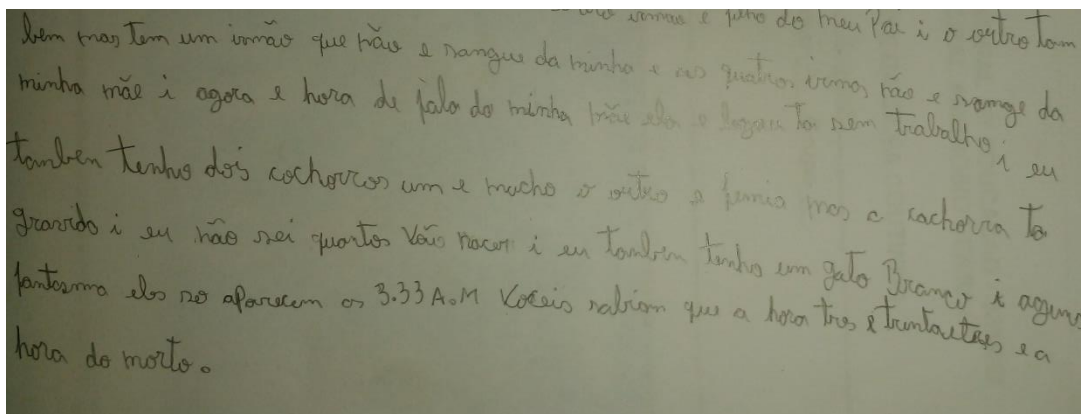 irmão e filho do meu Pai i o outro tam
bem mas tem um irmão que não e sangue da minha e as quatros irmos não e sramge da
minha mãe i agora e hora de falo do minha mãe ela e legau ta sem trabalho i eu
tamben tenho dois cochorros um e macho o outro e femia mas a cachorra ta
gravido i eu não sei quantos vãis nacer i eu tamben tenho um gato Branco i aguns
fantasma eles so aparecem as 3.33 A.M Voceis sabiam que a hora tres e trintaetres e a
hora do morto.